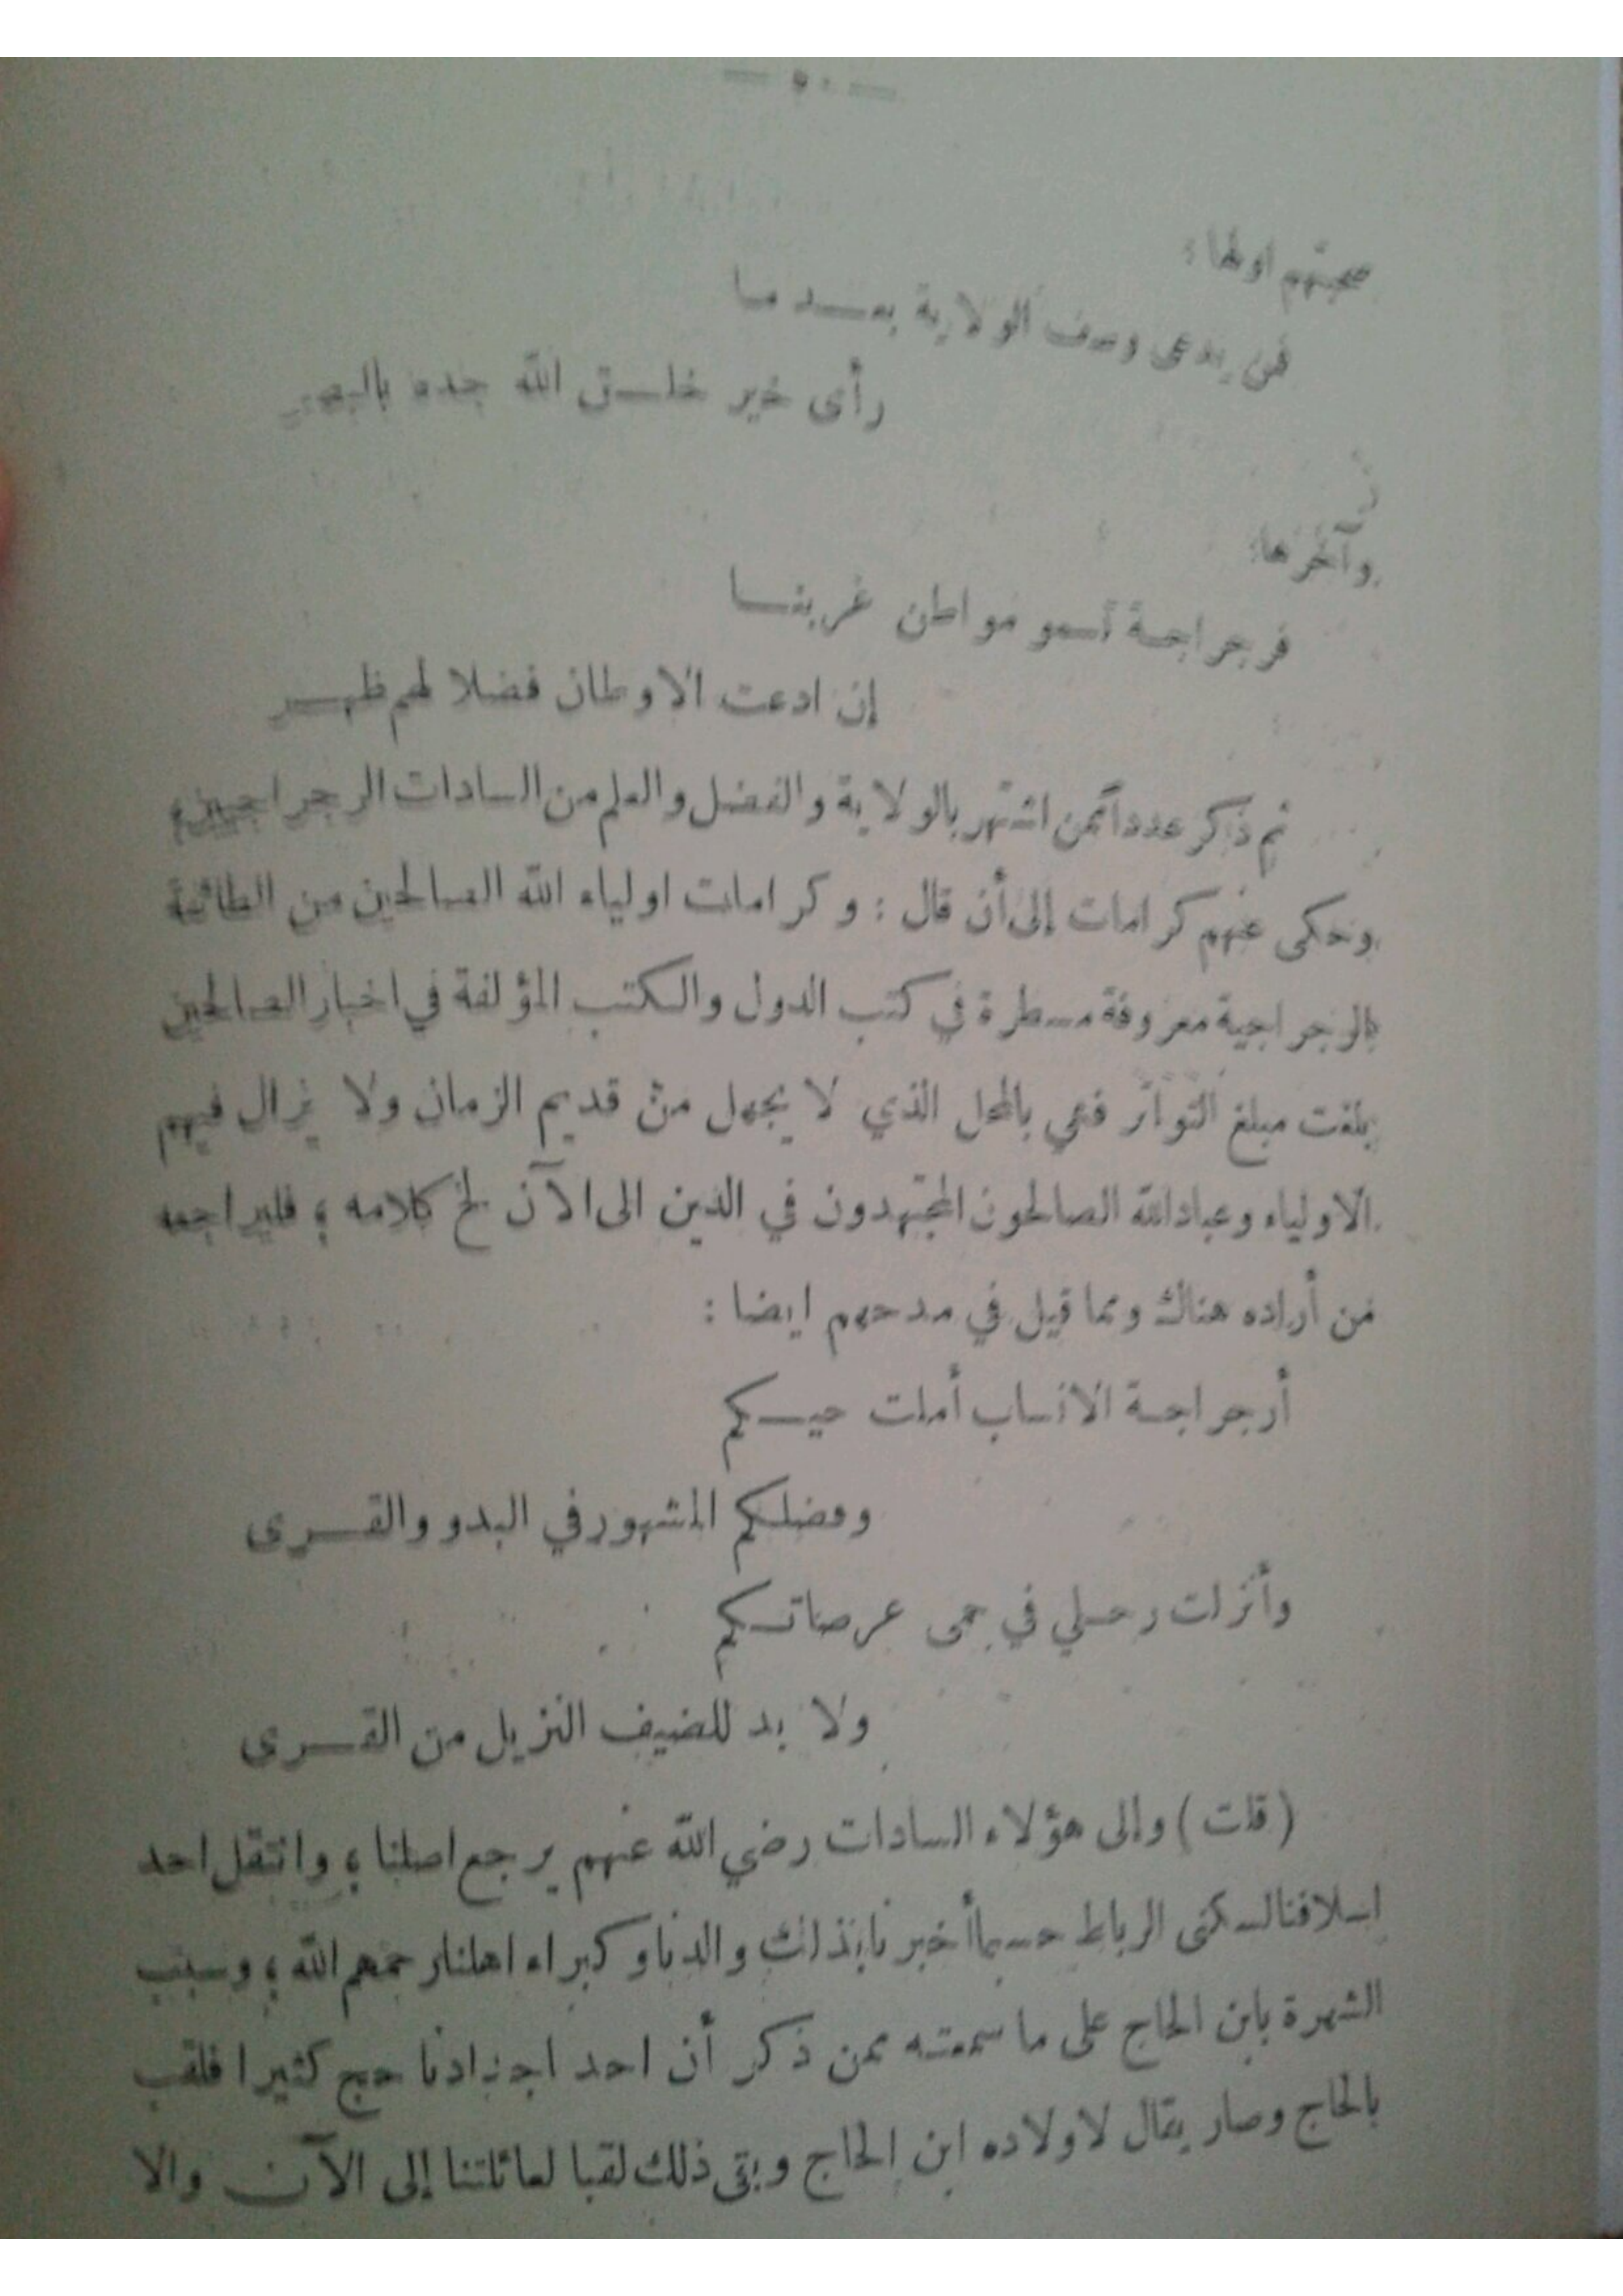 — ٥٠ —
صحبتهم اولها :
فمن يدعي وصف الولاية بعــد مـا
رأى خير خلــق الله جده بالبصر
وآخرها:
فرجراجـة تسمو مواطن غربنــا
إن ادعت الاوطان فضلا لهم ظهــر
ثم ذكر عدداً ممن اشتهر بالولاية والفضل والعلم من السادات الرجراجيين ،
وحكى عنهم كرامات إلى أن قال : وكرامات اولياء الله الصالحين من الطائفة
الرجراجية معروفة مسطرة في كتب الدول والكتب المؤلفة في اخبار الصالحين
بلغت مبلغ التواتر فهي بالمحل الذي لا يجهل من قديم الزمان ولا يزال فيهم
الاولياء وعبادالله الصالحون المجتهدون في الدين الى الآن لخ كلامه ، فليراجعه
من أراده هناك ومما قيل في مدحهم ايضا :
أرجراجـة الانساب أملت حيـــكم
وفضلـكم المشهور في البدو والقــرى
وأنزلت رحــلي في حمى عرصاتــكم
ولا بد للضيف النزيل من القــرى
( قلت ) وإلى هؤلاء السادات رضي الله عنهم يرجع اصلنا ، وانتقل احد
اسلافنا لسكنى الرباط حسبما أخبرنا بذلك والدنا وكبراء اهلنا رحمهم الله ، وسبب
الشهرة بابن الحاج على ما سمعته ممن ذكر أن احد اجدادنا حج كثيرا فلقب
بالحاج وصار يقال لاولاده ابن الحاج وبقي ذلك لقبا لعائلتنا إلى الآن والا